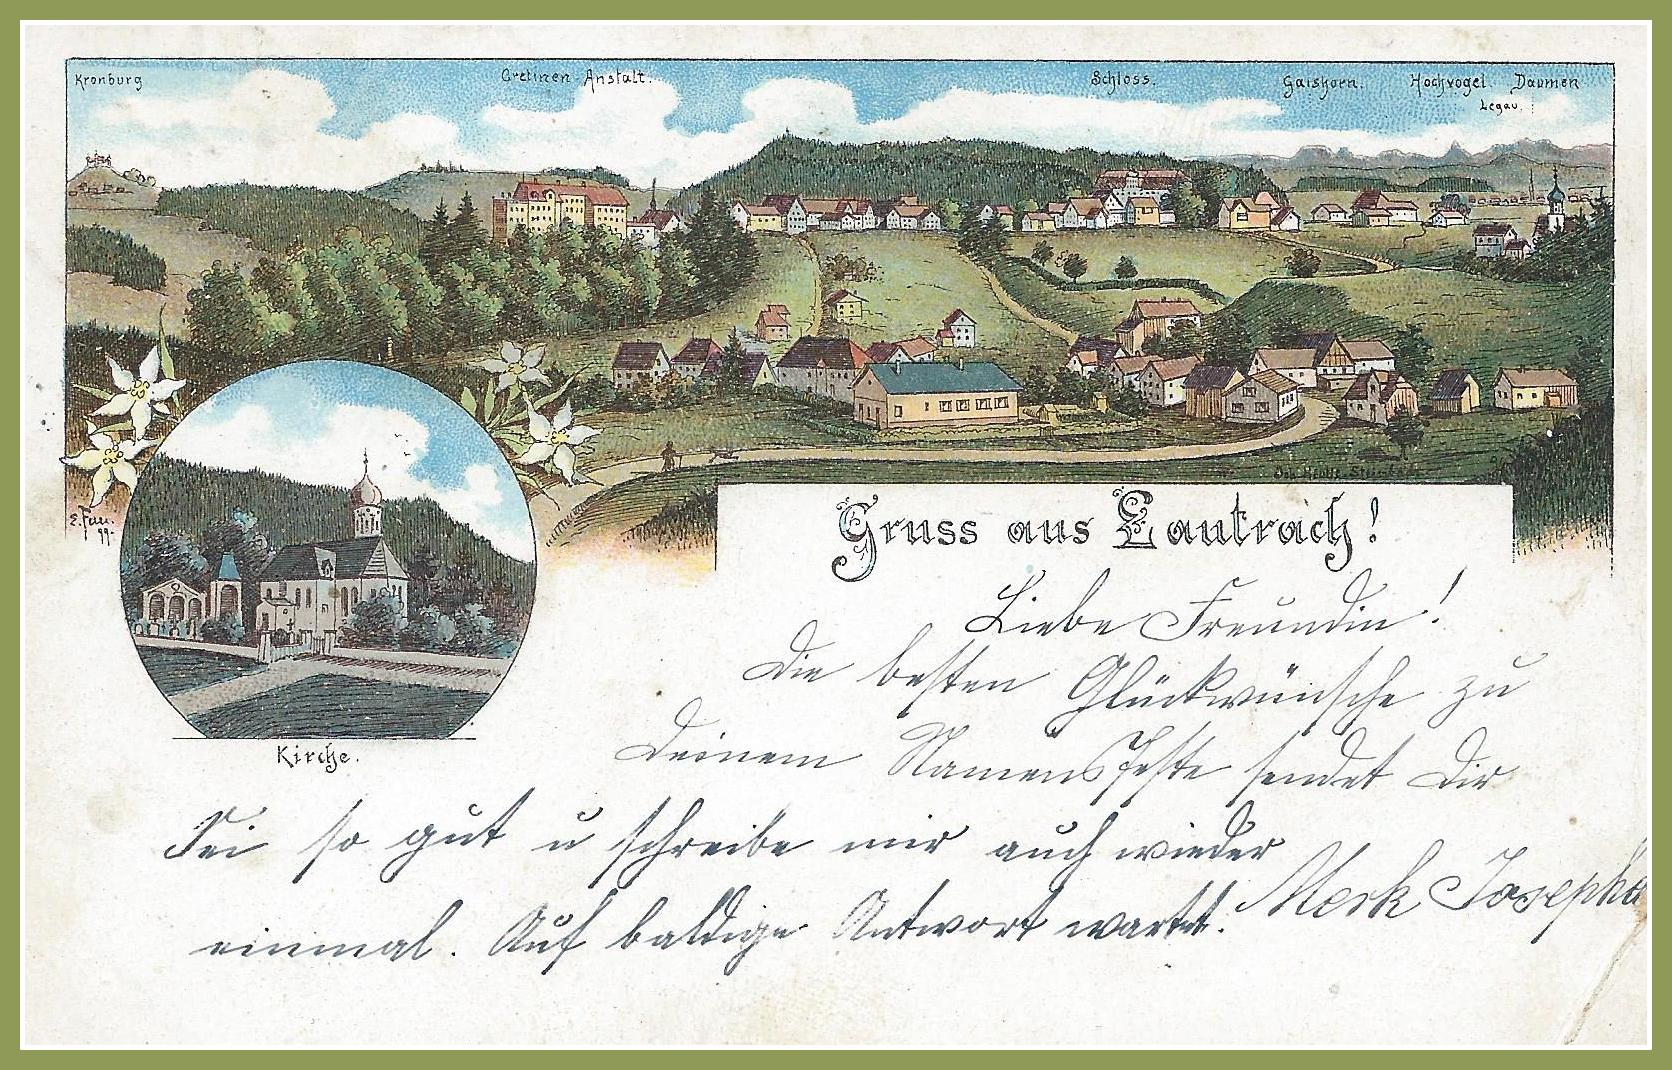 Kronburg
Cretinen Anstalt.
Schloss.
Gaishorn.
Hochvogel.
Daumen
Legau.
E. Felle.
99.
Kirche.
Gruss aus Lautrach!
Liebe Freundin!
Die besten Glückwünsche zu
Deinem Namensfeste sendet Dir
Merk Josepha
Sei so gut u schreibe mir auch wieder
einmal. Auf baldige Antwort wartet.